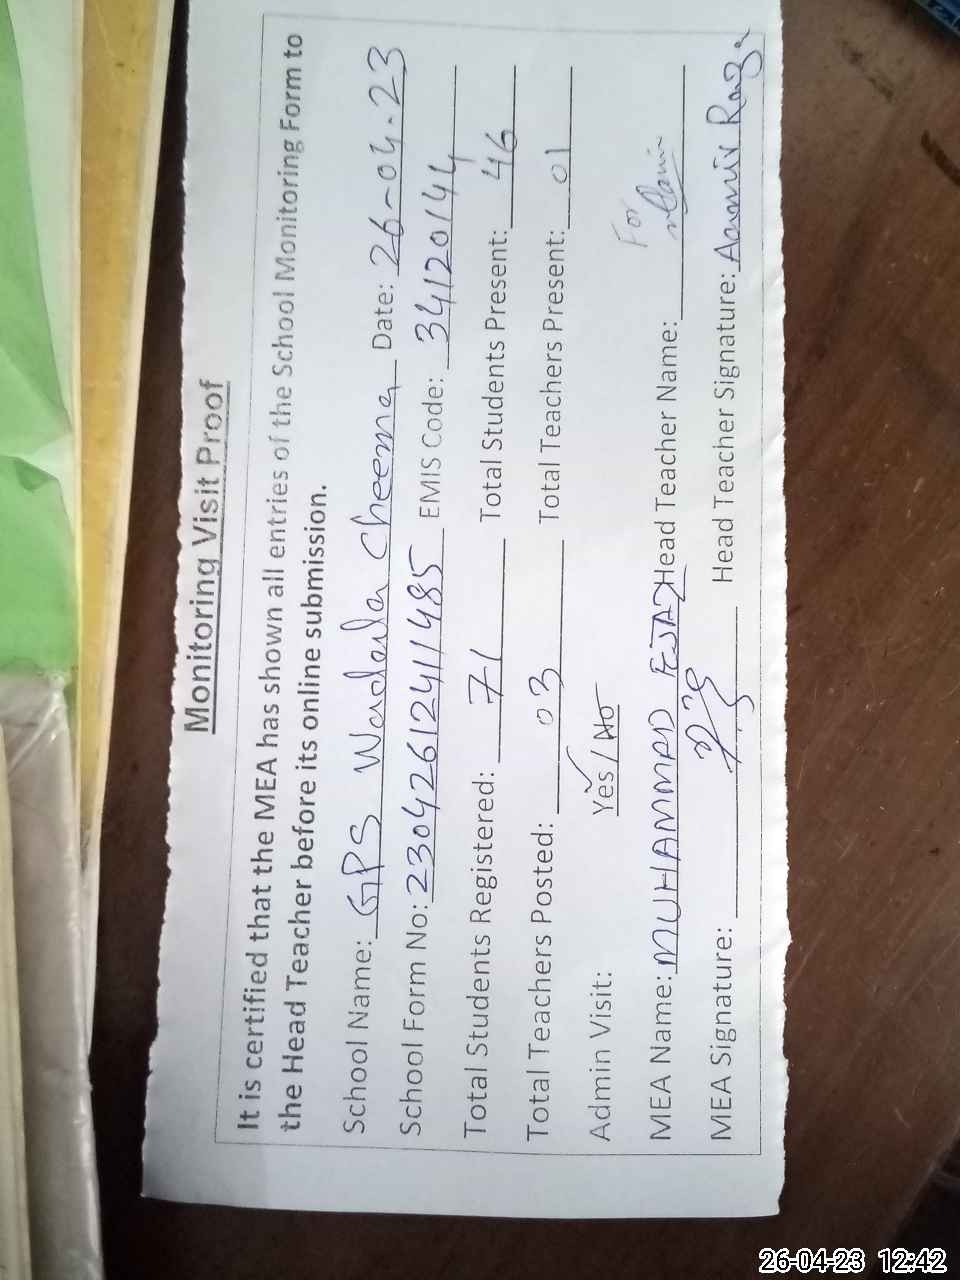 Monitoring Visit Proof
It is certified that the MEA has shown all entries of the School Monitoring Form to
the Head Teacher before its online submission.
School Name: GPS Wadala Cheema Date: 26-04-23
School Form No: 230426124111485 EMIS Code: 34120144
Total Students Registered: 71 Total Students Present: 46
Total Teachers Posted: 03 Total Teachers Present: 01
Admin Visit: Yes / No
For
MEA Name: MUHAMMAD EJAZ Head Teacher Name:
MEA Signature: Head Teacher Signature: Aamir Raza
26-04-23 12:42